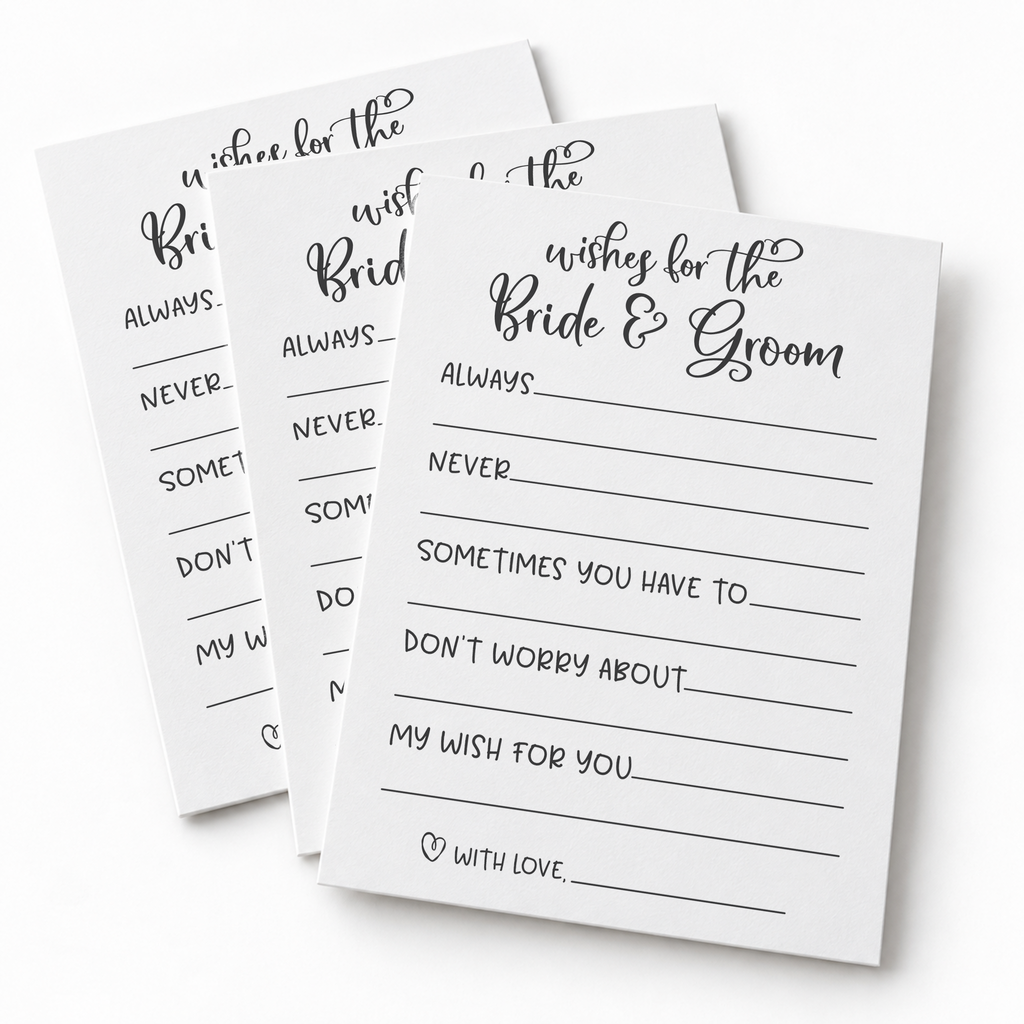 wishes for the
Bri
ALWAYS
NEVER
SOMET
DON'T
MY W
wis the
Brid
ALWAYS
NEVER
SOM
DO
M
wishes for the
Bride & Groom
ALWAYS
NEVER
SOMETIMES YOU HAVE TO
DON'T WORRY ABOUT
MY WISH FOR YOU
WITH LOVE,